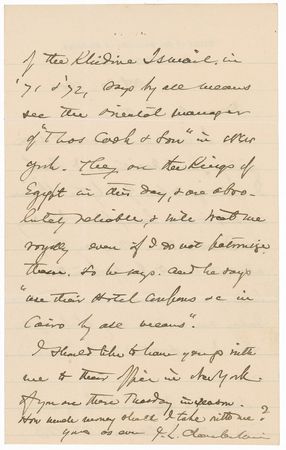 of the Khedive Ismail, in
'71 & '72, says by all means
see the oriental manager
of "Thos Cook & Son" in New
York. They are the Kings of
Egypt in this day, & are abso-
lutely reliable, & will treat me
royally even if I do not patronize
them. So he says. And he says
"use their Hotel Coupons &c in
Cairo by all means".
I should like to have you go with
me to their office in New York.
If you are there Tuesday in season.
How much money shall I take with me?
Yours as ever J. L. Chamberlain